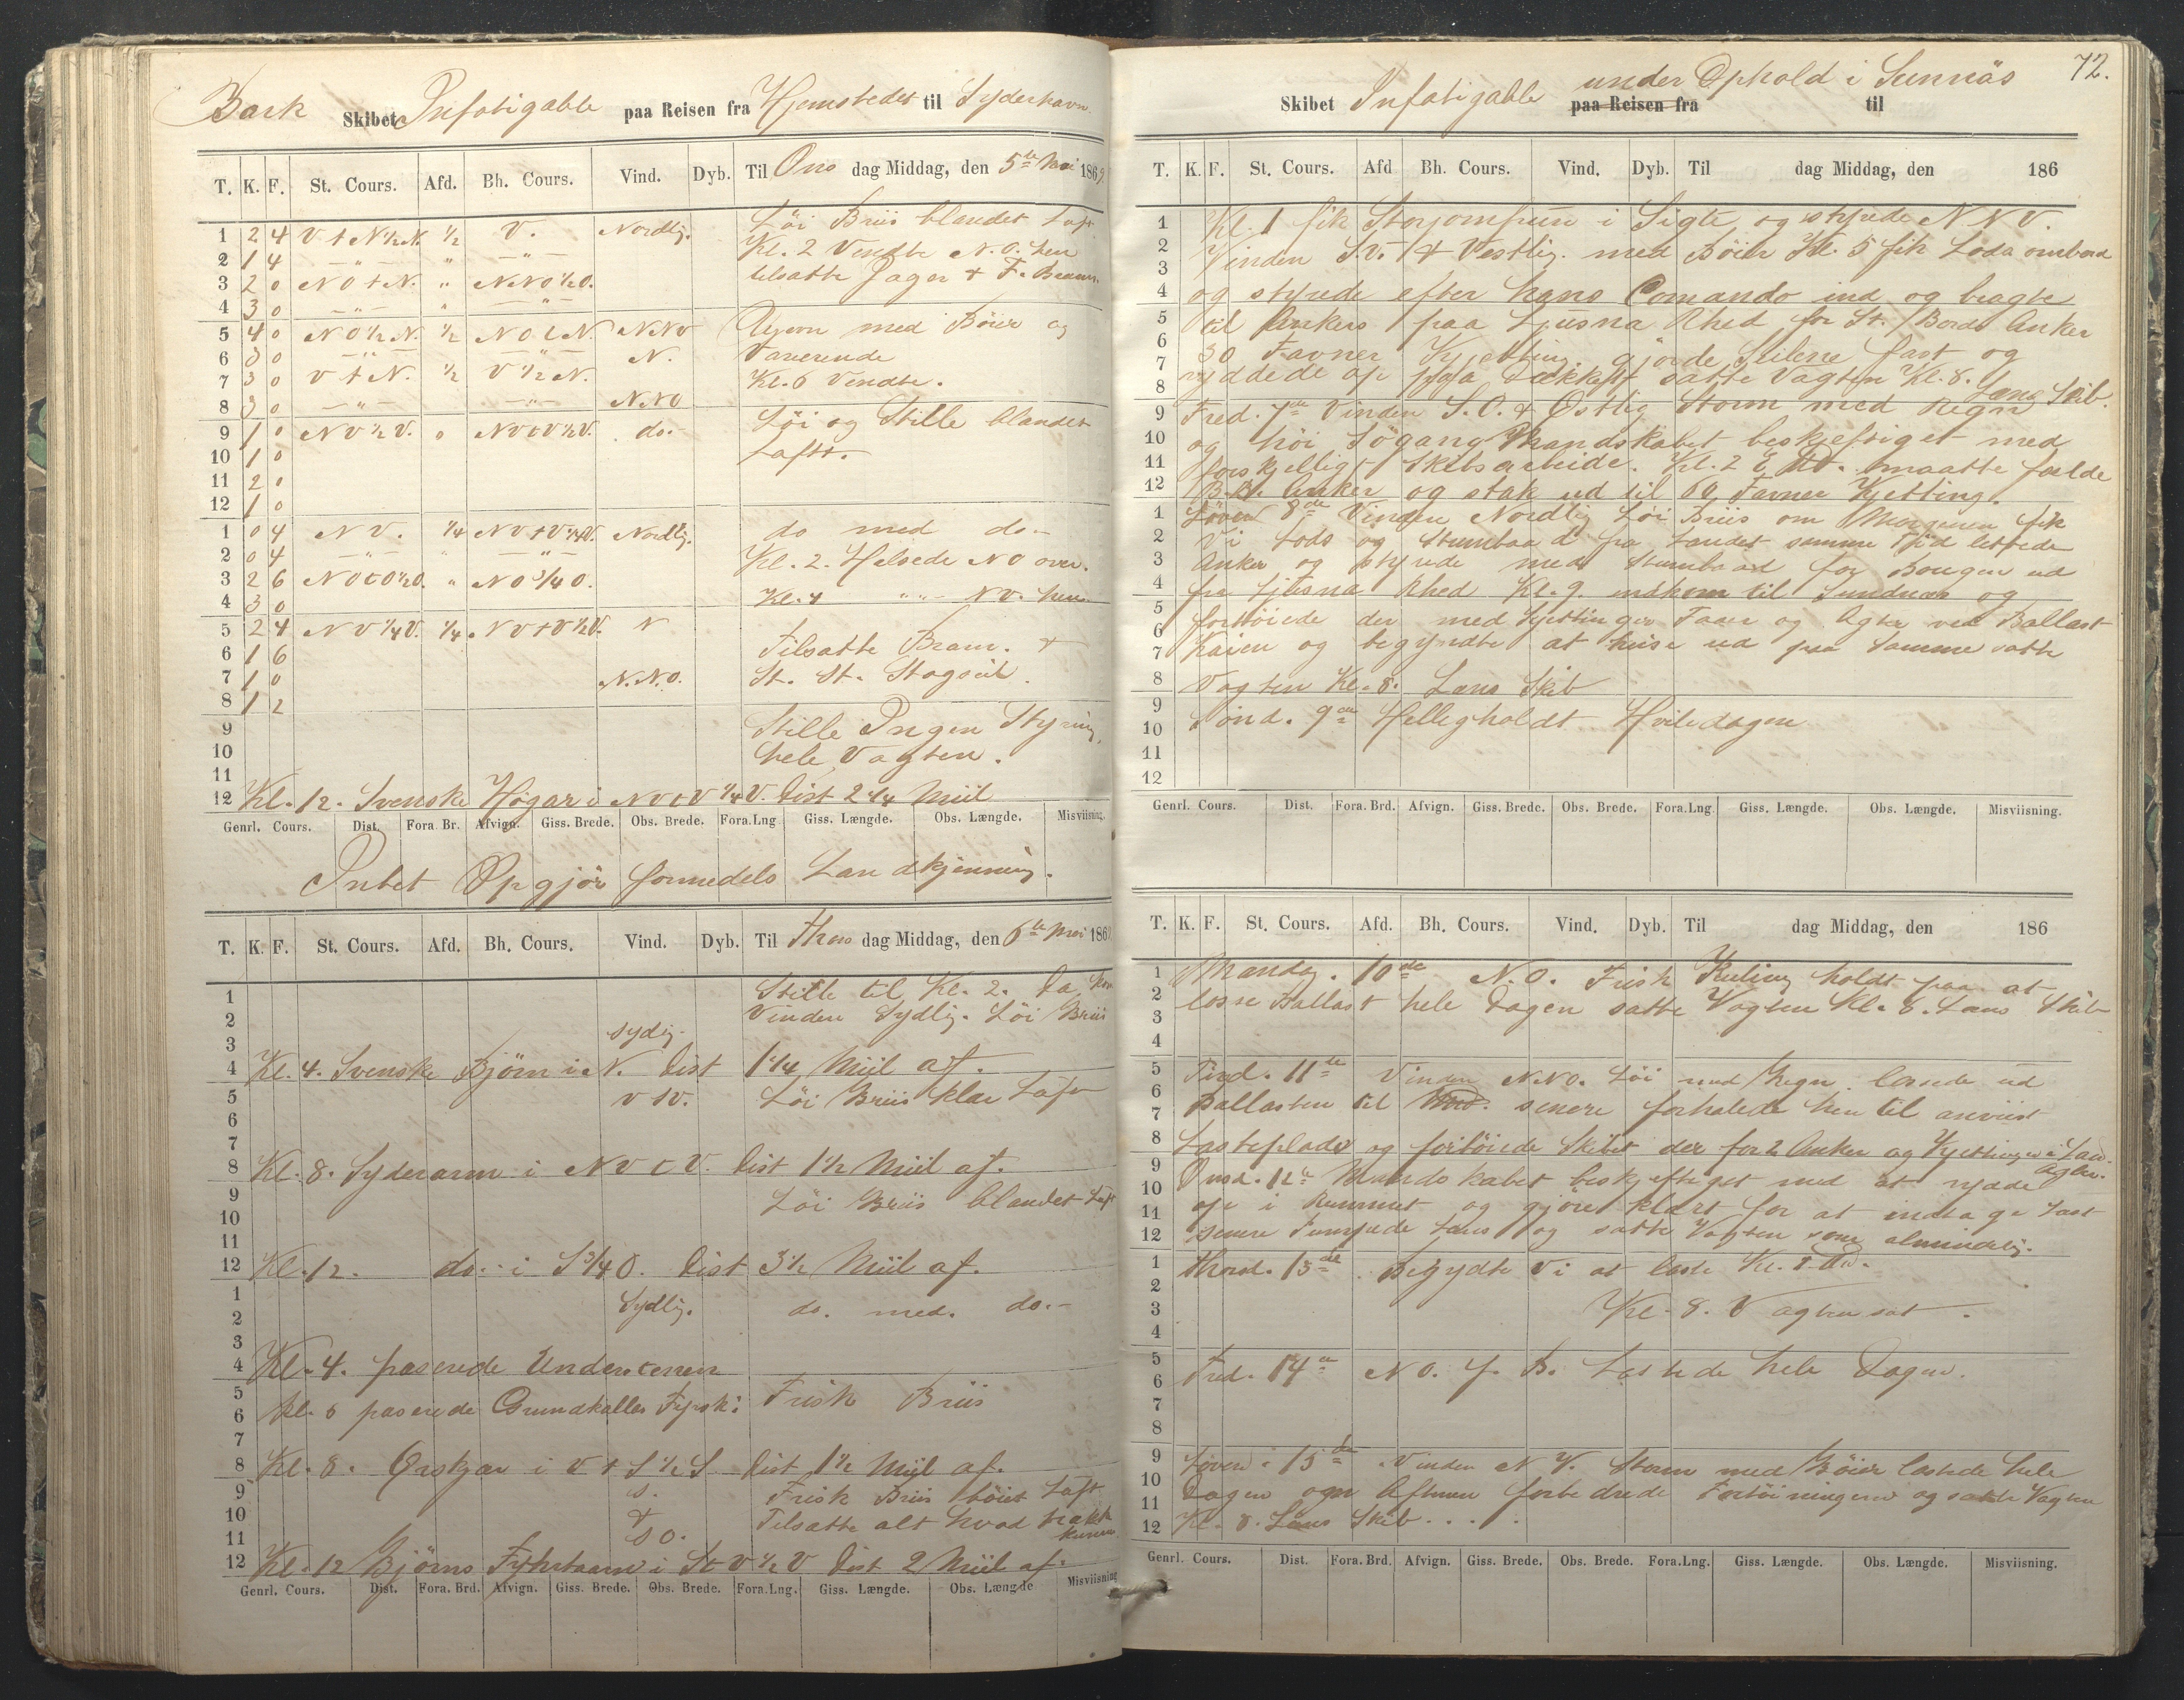 Bark Skibet Infatigable paa Reisen fra Hjemstedet til Syderhavn
T. K. F. St. Cours. Afd. Bh. Cours. Vind. Dyb. Til Ons dag Middag, den 5te Mai 1869
Löi Briis blandet Luft
1 2 4 V t N ½ N. ½ V. Nordlig.
2 1 4 — " — " — " — Kl. 2 Vendte N.O. hen
3 2 0 N O t N. " N.N.O ½ O. tilsatte Jager & F. Bram.
4 3 0 — " — " — " —
5 4 0 N O ½ N. ½ N O t N. N.N.V Ujevn med Böier og
6 3 0 — " — — " — N. Varierende
7 3 0 V t N. ½ V ½ N. Kl. 6 Vendte.
8 3 0 — " — — " — N.N.O
9 1 0 N V ½ V. 0 N V t V ½ V. do.- Löi og Stille blandet
10 1 0 Luft.
11 2 0
12 1 0
1 0 4 N V. ¼ N V t V ¼ V. Nordlig. do med do.-
2 0 4 — " — — " — Kl. 2. Halsede N O over.
3 2 6 N O t O ½ O. " N O ¾ O.
4 3 0 Kl. 4 " " N V. hen
5 2 4 N V ¼ V. ¼ N V t V ½ V. N
6 1 6 Tilsatte Bram. &
7 1 0 N.N.O. St. St. Stagseil.
8 1 2
9 Stille Ingen Styring,
10 hele Vagten.
11
12 Kl. 12. Svenske Högar i N V t V ¼ V. Dist 2 ¼ Miil
Genrl. Cours. Dist. Fora. Br. Afvign. Giss. Brede. Obs. Brede. Fora. Lng Giss. Længde. Obs. Længde. Misviisning.
Intet Opgjör formedels Landkjenning.
T. K. F. St. Cours. Afd. Bh. Cours. Vind. Dyb. Til Thors dag Middag, den 6te Mai 1869
1 Stille til Kl. 2. Da kom
2 Vinden Sydlig. Löi Briis
3 Sydig.
4 Kl. 4. Svenske Björn i N. Dist 1 ¼ Miil af.
5 V S V. Löi Briis klar Luft
6
7
8 Kl. 8. Syderarm i N V t V. Dist 1 ½ Miil af.
9 Löi Briis blandet Luft
10
11
12 Kl. 12. do. i S ¾ O. Dist 3 ½ Miil af.
1 Sydlig. do. med. do.-
2
3
4 Kl. 4. paserede Understenen
5 Kl. 6 paserede Grundkallen Fyrsk: Frisk Briis
6
7
8 Kl. 8. Örskjær i V t S ½ S Dist 1 ½ Miil af.
9 S. Frisk Briis böiet Luft
10 & Tilsatte alt hvad trække
11 S O. kunne.
12 Kl. 12 Björns Fyhrtaarn i St V ½ V Dist 2 Miil af.
Genrl. Cours. Dist. Fora. Brd. Afvign. Giss. Brede. Obs. Brede. Fora. Lng. Giss. Længde. Obs. Længde Misviisning
72.
Skibet Infatigable under Ophold i Sunnäs paa Reisen fra til
T. K. F. St. Cours. Afd Bh. Cours. Vind. Dyb. Til dag Middag, den 186
1 Kl. 1 fik Storjomfrun i Sigte og styrede N N V.
2 Vinden S.V. & Vestlig. med Böier Kl. 5 fik Lods ombord
3
4 og styrede efter hans Comando ind og bragte
5 til Ankers paa Ljusna Rhed for St. Bords Anker
6 30 Favner Kjetting. gjorde Seilene fast og
7 ryddede op paa Dækket satte Vagten Kl. 8.
8 Læns Skib.
9 Fred. 7de Vinden S.O. & Östlig Storm med Regn
10 og höi Sögang Mandskabet beskjeftiget med
11 forskjelligt Skibsarbeide. Kl. 2 E. Md. maatte falde
12 B.B. Anker og stak ud til 60 Favner Kjetting.
1 Löver 8de Vinden Nordlig Löi Briis om Morgenen fik
2 Vi Lods og Stumbaad fra Landet samme Tid lettede
3 Anker og styrede med Stumbaad for Bougen ud
4 fra Ljusna Rhed Kl. 9. indkom til Sundnæs og
5 fortöiede der med Kjettinger Foer og Agter ved Ballast
6
7 Kaien og begyndte at heise ud paa Samme satte
8 Vagten Kl. 8. Læns Skib
9 Sönd. 9de Helligholdt Hviledagen
10
11
12
Genrl. Cours. Dist. Fora. Brd. Afvign. Giss. Brede. Obs. Brede. Fora. Lng Giss. Længde. Obs. Længde. Misviisning.
T. K. F. St. Cours. Afd. Bh. Cours. Vind. Dyb. Til dag Middag, den 186
1 Mandag. 10de N.O. Frisk Kuling holdt paa at
2 losse Ballast hele Dagen satte Vagten Kl. 8. Læns Skib
3
4
5 Tirsd. 11te Vinden N.N.O. Löi med Regn. lossede ud
6 Ballasten til Md. senere forhalede hen til anviist
7
8 Lasteplads og fortöiede Skibet der for 2 Anker og Kjettinger i Land
9 Agter.
10 Onsd. 12te Mandskabet beskjeftiget med at rydde
11 op i Rummet og gjöre klart for at indtage Last
12 senere Pumpede læns og satte Vagten som almindelig.
1 Thorsd. 13de Begydte Vi at laste Kl. 1 Md.
2
3 Kl. 8. Vagten sat.
4
5 Fred. 14de N O. f. B. Lastede hele Dagen.
6
7
8
9 Löverd. 15de Vinden N V. Storm med Böier lastede hele
10 Dagen om Aftenen forbedrede Fortöiningerne og satte Vagten
11
12 Kl. 8. Læns Skib . . . .
Genrl. Cours. Dist. Fora. Brd. Afvign. Giss. Brede. Obs. Brede. Fora. Lng. Giss. Længde. Obs. Længde. Misviisning.